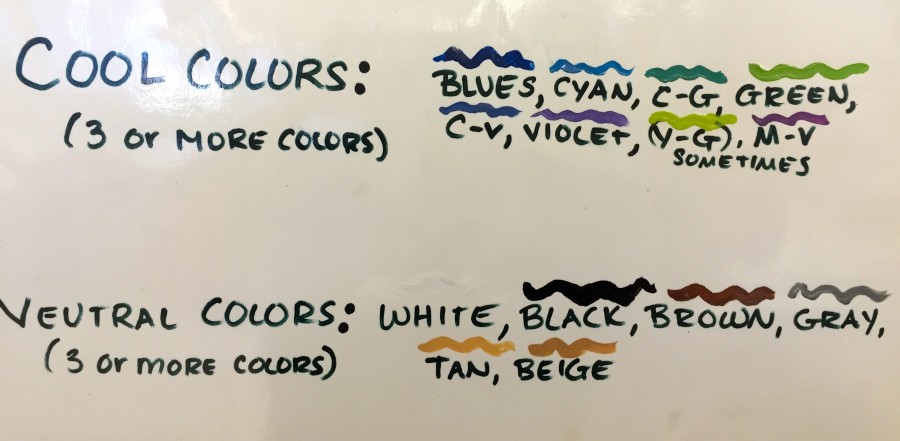 COOL COLORS: BLUES, CYAN, C-G, GREEN,
(3 or MORE COLORS) C-V, VIOLET, (Y-G), M-V
SOMETIMES
NEUTRAL COLORS: WHITE, BLACK, BROWN, GRAY,
(3 or more COLORS) TAN, BEIGE